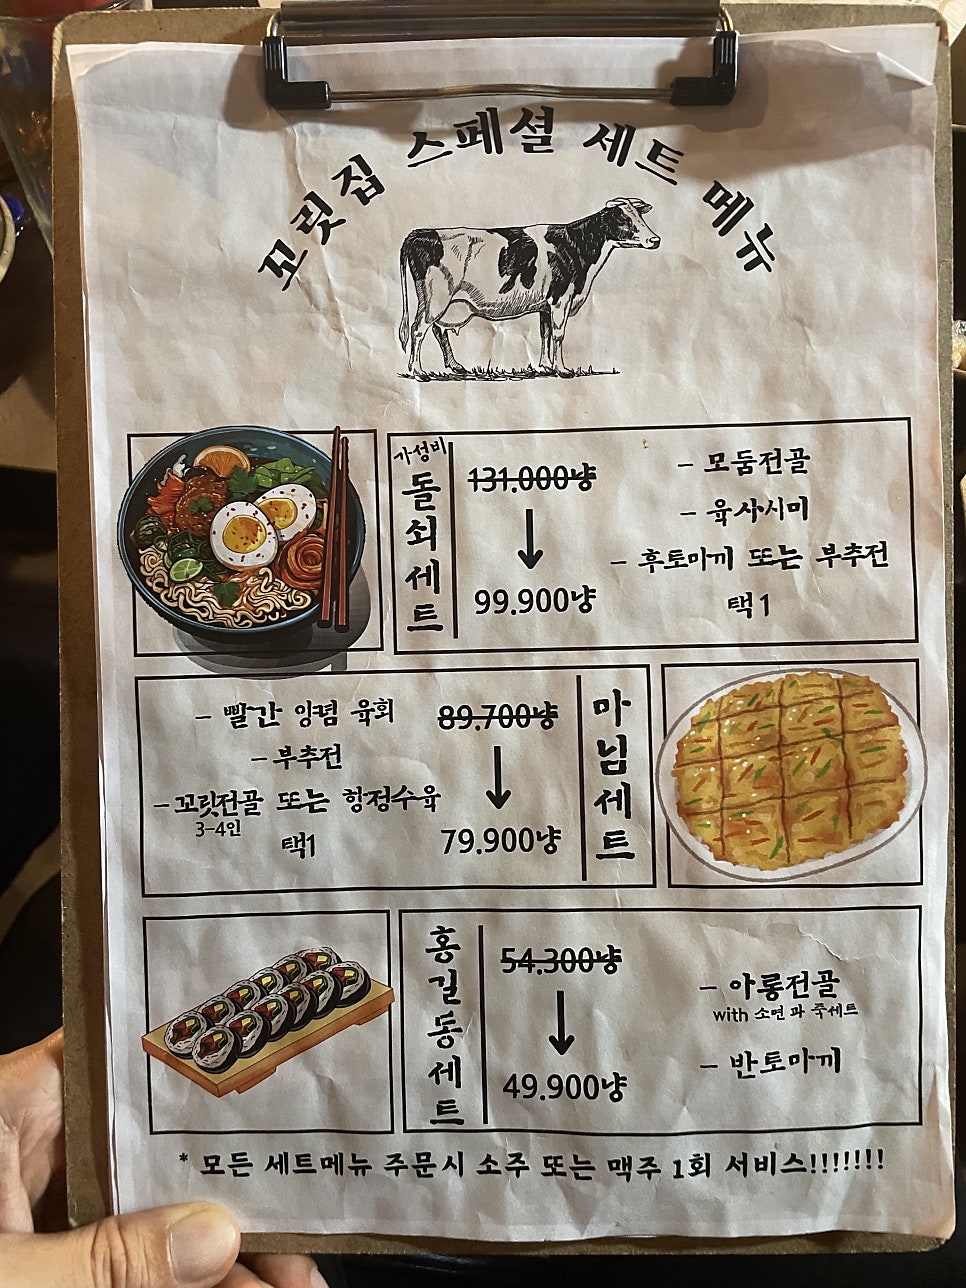 꼬릿집 스페셜 세트 메뉴
가성비
돌쇠세트
131.000냥
99.900냥
- 모둠전골
- 육사시미
- 후토마끼 또는 부추전
택1
- 빨간 양념 육회
- 부추전
- 꼬릿전골 또는 항정수육
3-4인
택1
89.700냥
79.900냥
마님세트
홍길동세트
54.300냥
49.900냥
- 아롱전골
with 소면 과 죽세트
- 반토마끼
* 모든 세트메뉴 주문시 소주 또는 맥주 1회 서비스!!!!!!!